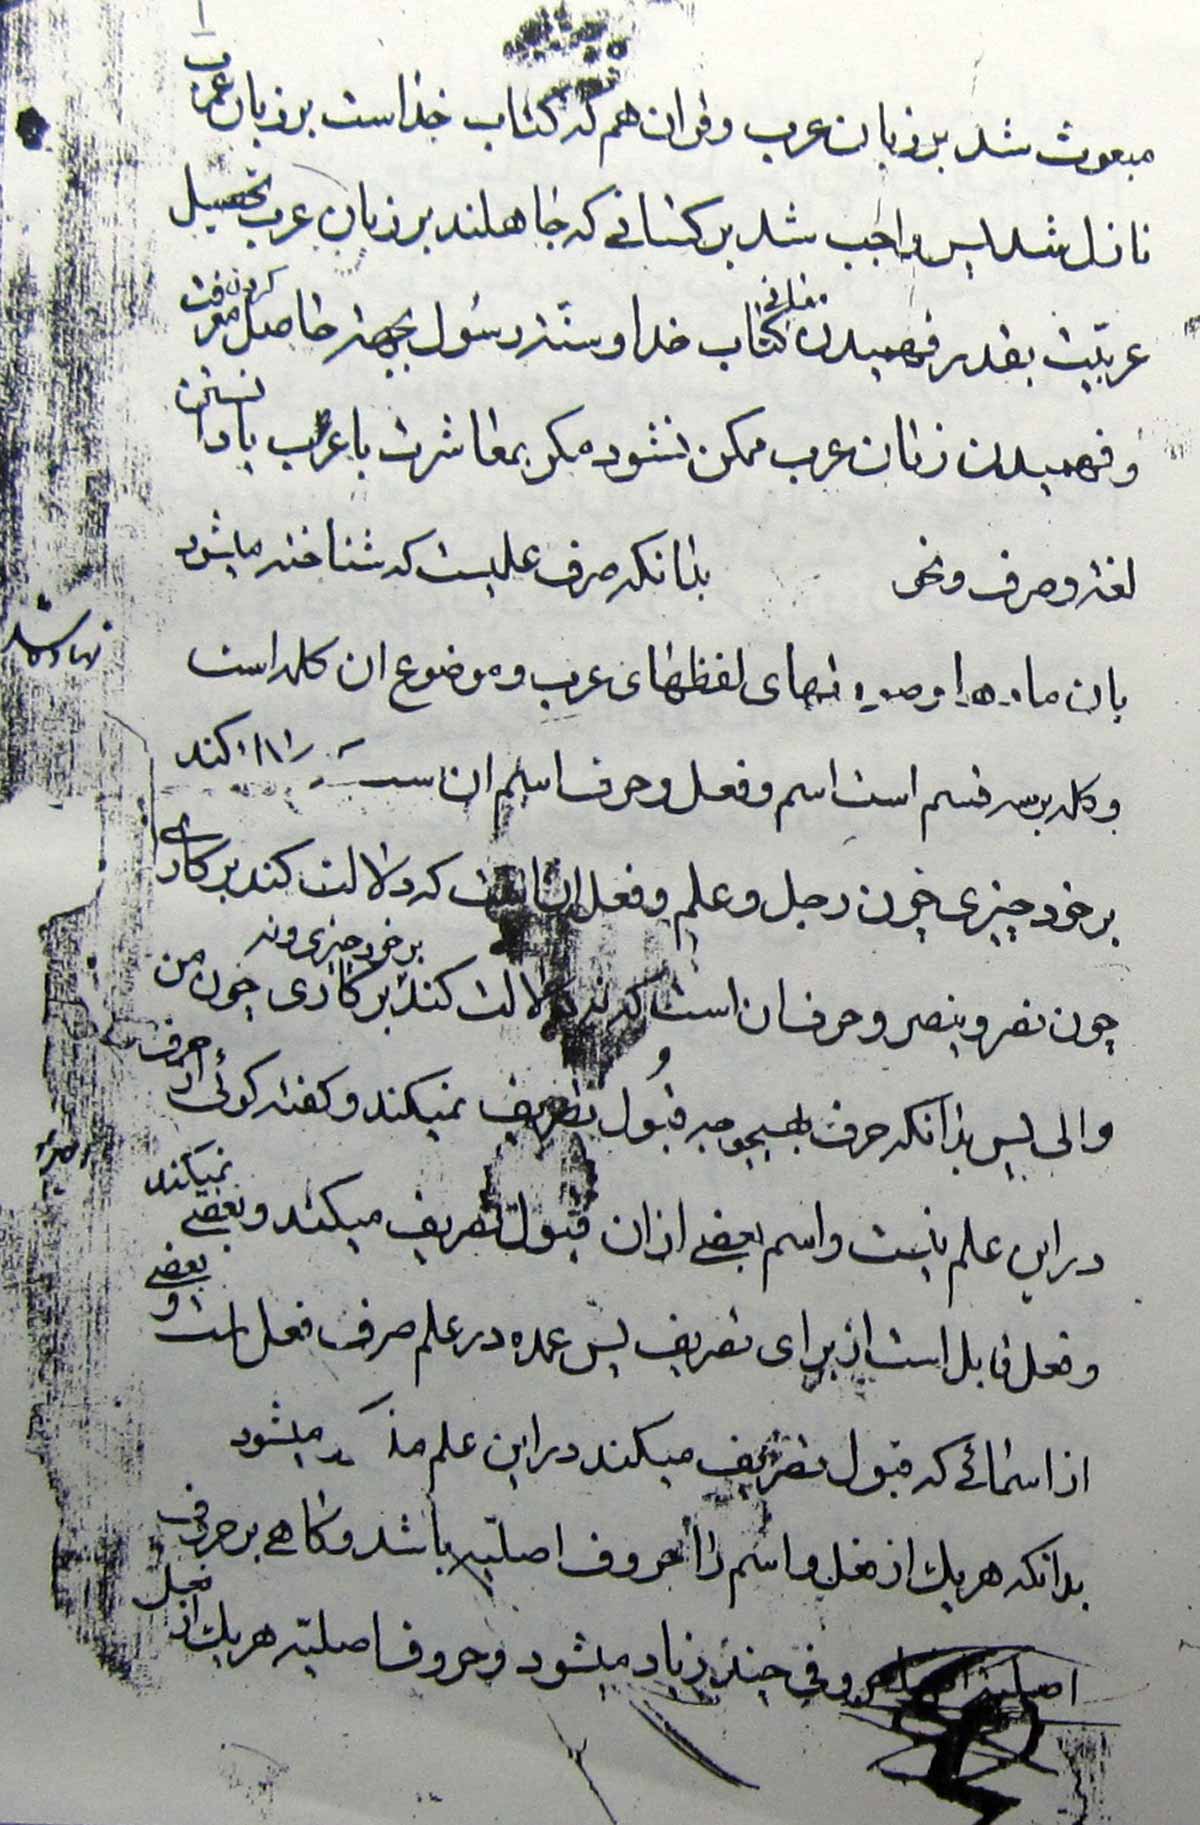 مبعوث شد بر زبان عرب و قران هم که کتاب خداست بر زبان عرب
نازل شد پس واجب شد بر کسانی که جاهلند بر زبان عرب تحصیل
عربیّت بقدر فهمیدن معانی کتاب خدا و سنّت رسول بجهة حاصل کردن معرفت
و فهمیدن زبان عرب ممکن نشود مکر بمعاشرت با عرب یا دانستن
لغة و صرف و نحو بدانکه صرف علمیست که شناخته میشود
بان و لفظهای عرب و موضوع ان کلمه است
و کلمه بر سه قسم است اسم و فعل و حرف اسم ان کند
بر خود چیزی چون رجل و علم و فعل ان است که دلالت کند بر کاری
چون نصر و ینصر و حرف ان است که نه دلالت کند بر خود چیزی و نه بر کاری چون من
و الی پس بدانکه حرف بهیچوجه قبول تصریف نمیکند و گفته گوئی از حرف
در این علم نیست و اسم بعضی از ان قبول تصریف میکند و بعضی نمیکند
و فعل قابل است از برای تصریف پس عمده در علم صرف فعل است و بعضی
از اسمائے که قبول تصریف میکند در این علم میشود
بدانکه هر یک از فعل و اسم را حروف اصلیّه باشد و گاهے بر حروف
اصلیّه حروفی چند زیاد میشود و حروف اصلیّه هر یک از فعل